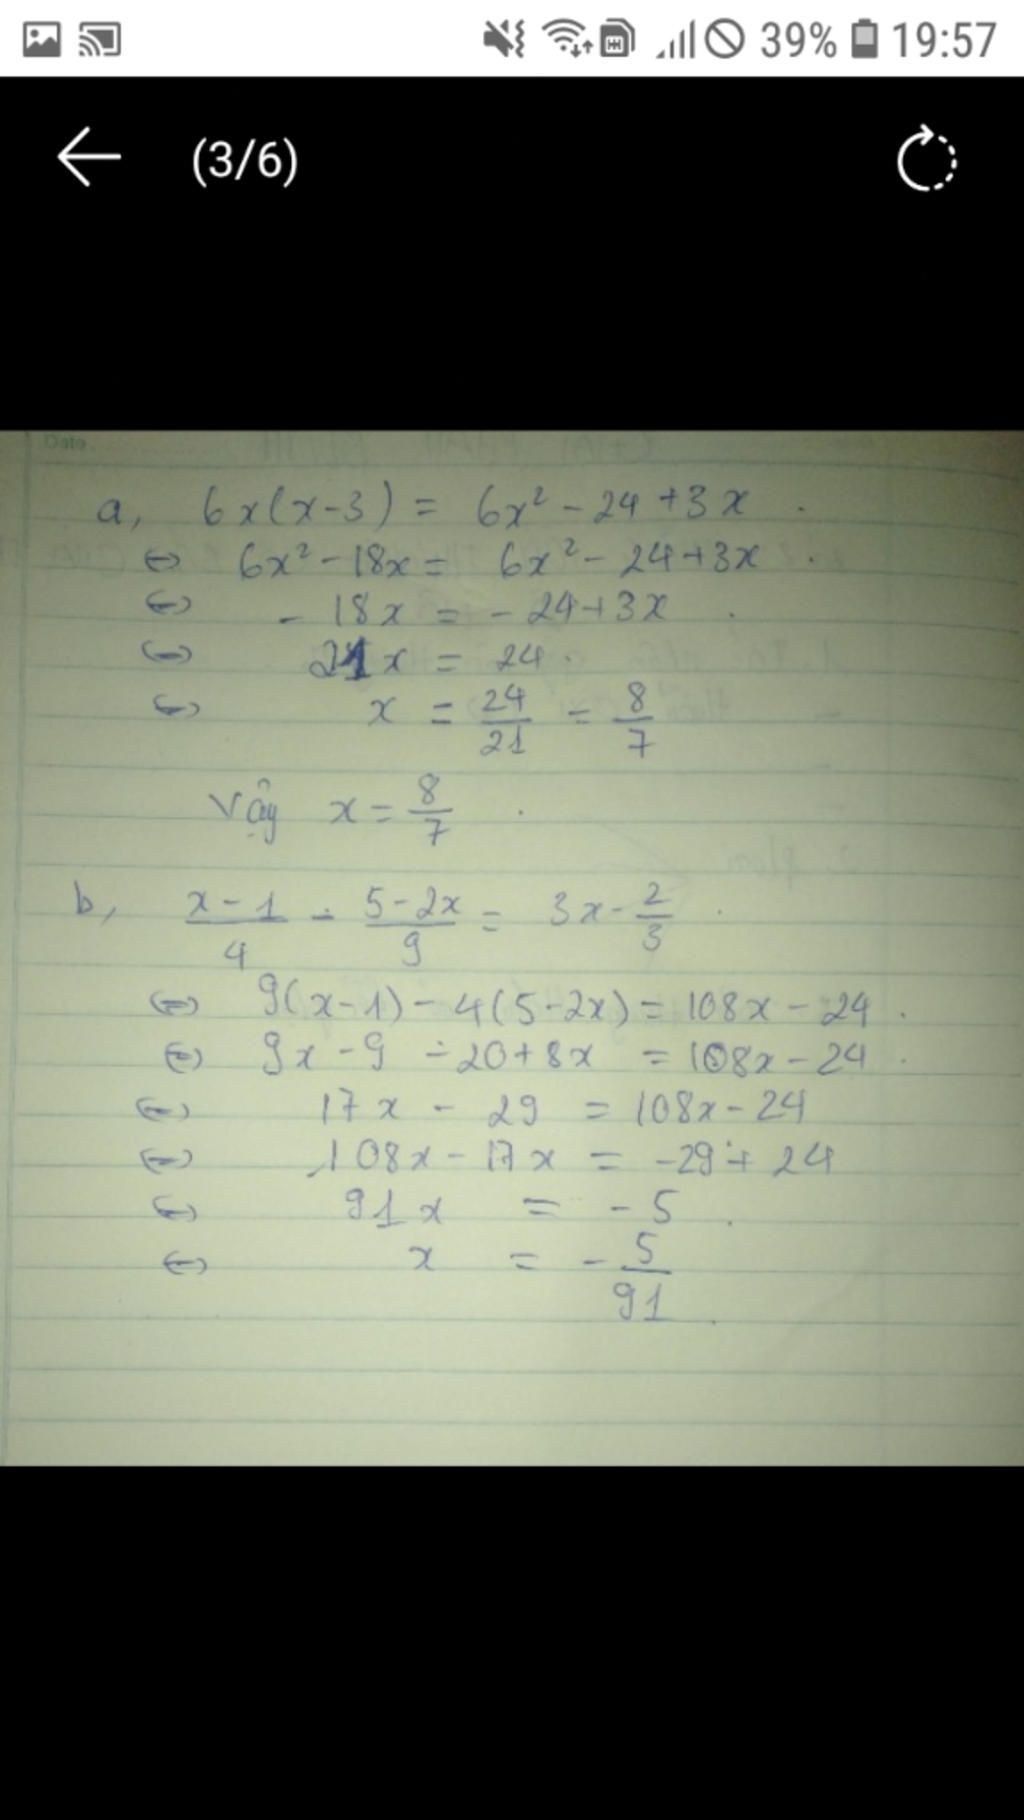 39% 19:57
(3/6)
Date
a, 6x(x-3) = 6x² - 24 + 3x.
⇔ 6x² - 18x = 6x² - 24 + 3x.
⇔ - 18x = - 24 + 3x.
⇔ 21x = 24.
⇔ x = 24/21 = 8/7
Vậy x = 8/7.
b, (x-1)/4 - (5-2x)/9 = 3x - 2/3.
⇔ 9(x-1) - 4(5-2x) = 108x - 24.
⇔ 9x - 9 - 20 + 8x = 108x - 24.
⇔ 17x - 29 = 108x - 24
⇔ 108x - 17x = -29 + 24
⇔ 91x = - 5.
⇔ x = - 5/91.